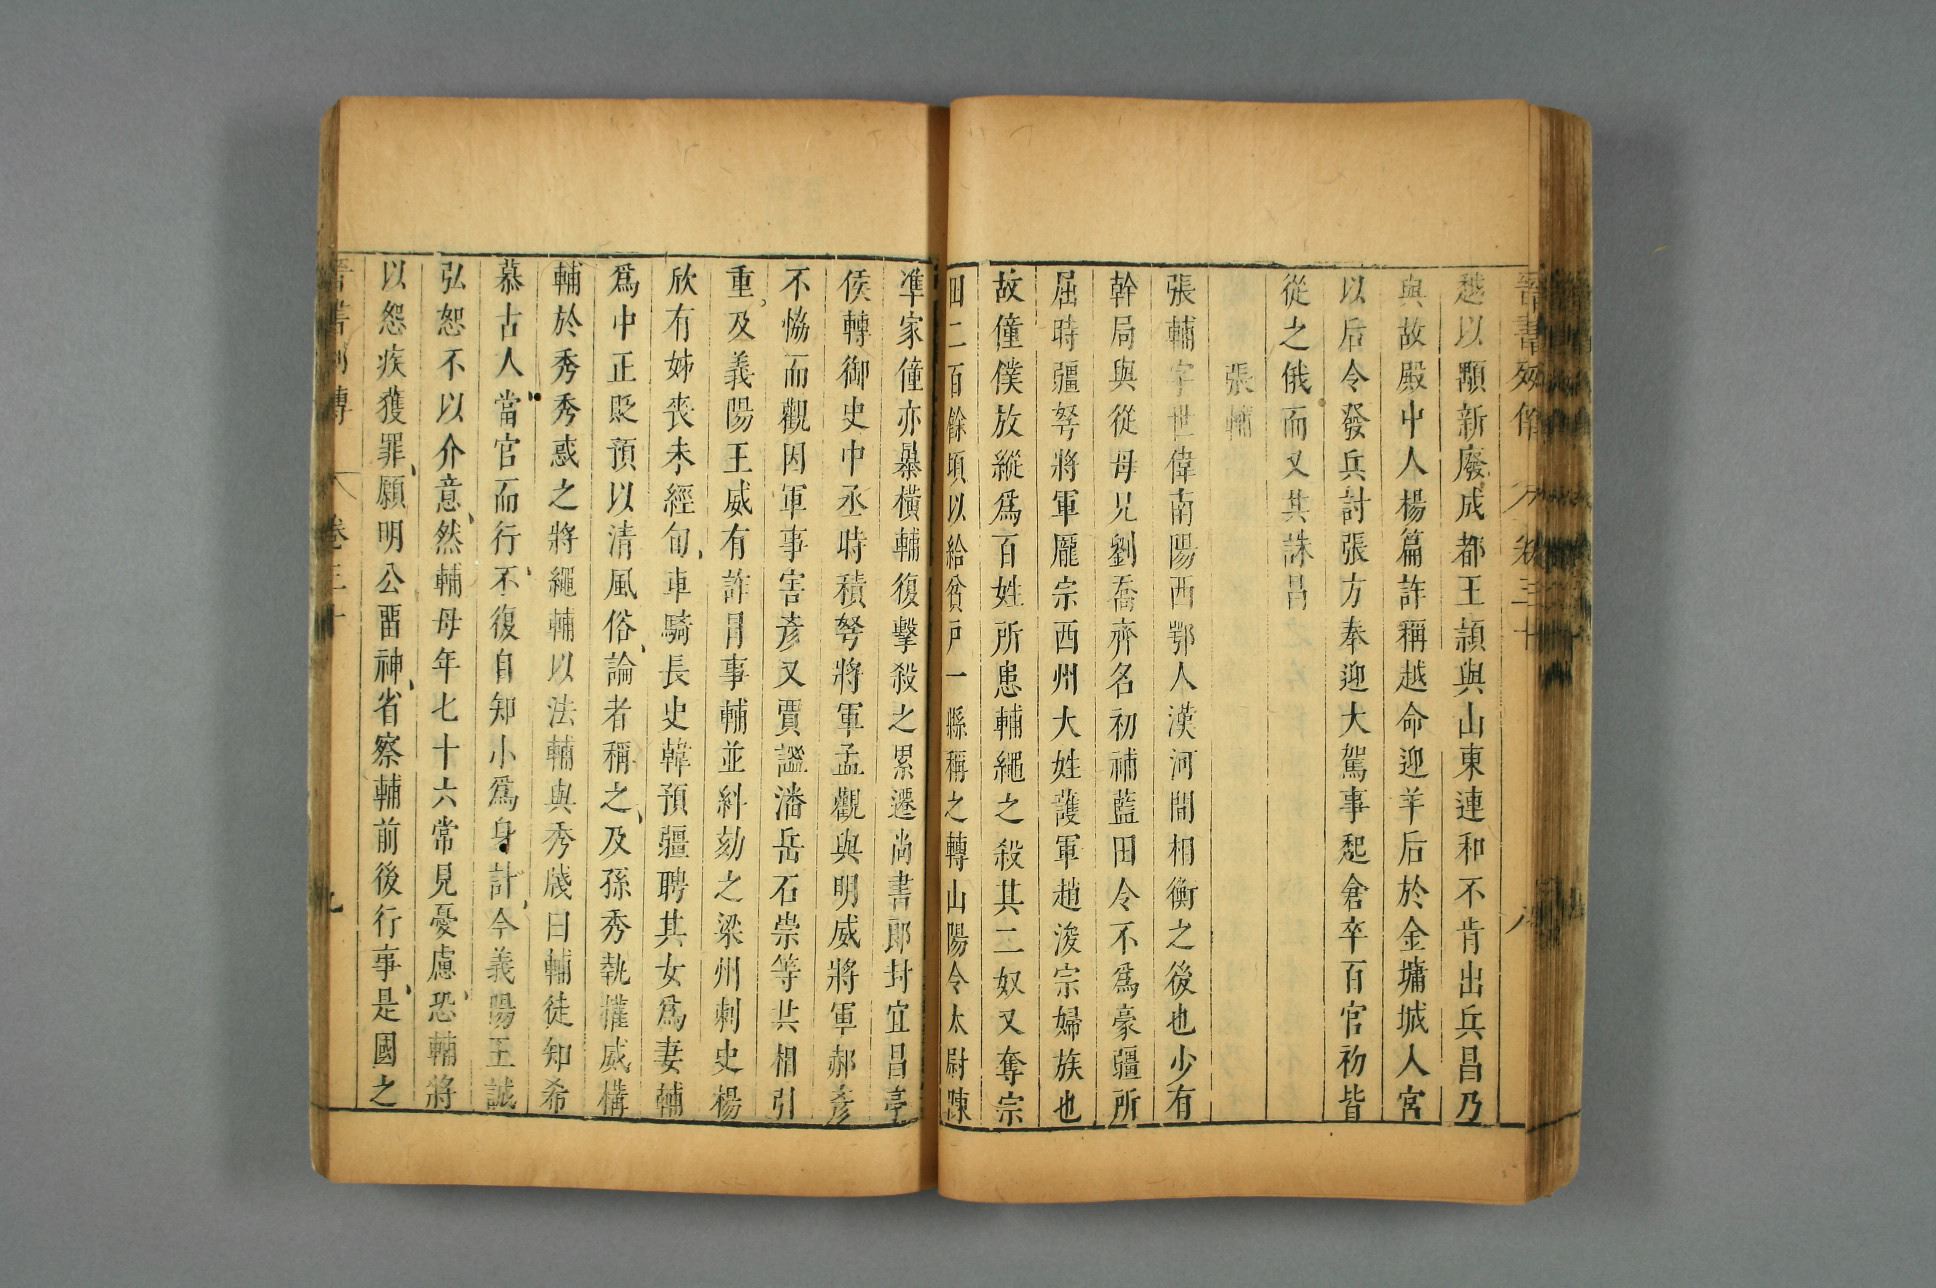 晉書列傳 卷三十 八
越以顒新廢成都王頴與山東連和不肯出兵昌乃
與故殿中人楊篇詐稱越命迎羊后於金墉城入宮
以后令發兵討張方奉迎大駕事起倉卒百官初皆
從之俄而又共誅昌
張輔
張輔字世偉南陽西鄂人漢河間相衡之後也少有
幹局與從母兄劉喬齊名初補藍田令不爲豪彊所
屈時彊弩將軍龐宗西州大姓護軍趙浚宗婦族也
故僮僕放縱爲百姓所患輔繩之殺其二奴又奪宗
田二百餘頃以給貧戸一縣稱之轉山陽令太尉陳
準家僮亦暴橫輔復擊殺之累遷尚書郎封宜昌亭
侯轉御史中丞時積弩將軍孟觀與明威將軍郝彥
不恊而觀因軍事害彥又賈謐潘岳石崇等共相引
重及義陽王威有詐冒事輔並糾劾之梁州刺史楊
欣有姊喪未經旬車騎長史韓預彊聘其女爲妻輔
爲中正貶預以清風俗論者稱之及孫秀執權威構
輔於秀秀惑之將繩輔以法輔與秀牋曰輔徒知希
慕古人當官而行不復自知小爲身計今義陽王誠
弘恕不以介意然輔母年七十六常見憂慮恐輔將
以怨疾獲罪願明公畱神省察輔前後行事是國之
晉書列傳 卷三十 九